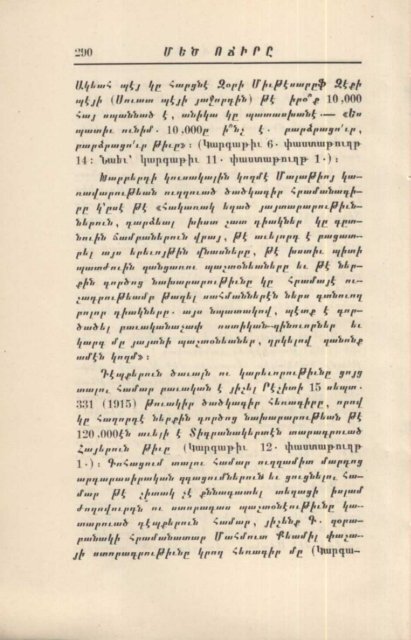 290 ՄԵԾ ՈՃԻՐԸ
Ակեահ պէյ կը հարցնէ Զօրի Միւթէսարըֆ Զէքի
պէյի (Սուատ պէյի յաջորդին) թէ իրօ՞ք 10,000
հայ սպաննած է, անիկա կը պատասխանէ.— «Ես
պատիւ ունիմ. 10.000ը ի՞նչ է. բարձրացո՛ւր,
բարձրացո՛ւր թիւը»: (Կարգաթիւ 6. փաստաթուղթ
14: Նաեւ՝ կարգաթիւ 11. փաստաթուղթ 1.):
Խարբերդի կուսակալին կողմէ Մալաթիոյ կա-
ռավարութեան ուղղուած ծածկագիր հրամանագի-
րը կ՚ըսէ թէ «Հակառակ եղած յայտարարութիւն-
ներուն, դարձեալ խիստ շատ դիակներ կը գտն-
ուին ճամբաներուն վրայ, թէ աւելորդ է բացատ-
րել այս երեւոյթին վնասները, թէ խստիւ պիտի
պատժուին զանցառու պաշտօնեաները եւ թէ ներ-
քին գործոց նախարարութիւնը կը հրամայէ ու-
շադրութեամբ թաղել սահմաններէն ներս գտնուող
բոլոր դիակները. այս նպատակով, պէտք է գոր-
ծածել բաւականաչափ ոստիկան-զինուորներ եւ
կարգ մը յայտնի պաշտօնեաներ, ղրկելով զանոնք
ամէն կողմ»:
Դէպքերուն ծաւալն ու կարեւորութիւնը ցոյց
տալու համար բաւական է յիշել Րէշիտի 15 սեպտ.
331 (1915) թուակիր ծածկագիր հեռագիրը, որով
կը հաղորդէ ներքին գործոց նախարարութեան թէ
120.000էն աւելի է Տիգրանակերտէն տարագրուած
Հայերուն թիւը (Կարգաթիւ 12. փաստաթուղթ
1.): Գոհացում տալու համար ուղղամիտ մարդոց
արդարասիրական զգացումներուն եւ ցուցնելու հա-
մար թէ չիտակ չէ քննադատել տեղացի իսլամ
ժողովուրդն ու ստորադաս պաշտօնէութիւնը կա-
տարուած դէպքերուն համար, յիշենք Գ. զօրա-
բանակի հրամանատար Մահմուտ Քեամիլ փաշա-
յի ստորագրութիւնը կրող հեռագիր մը (Կարգա-